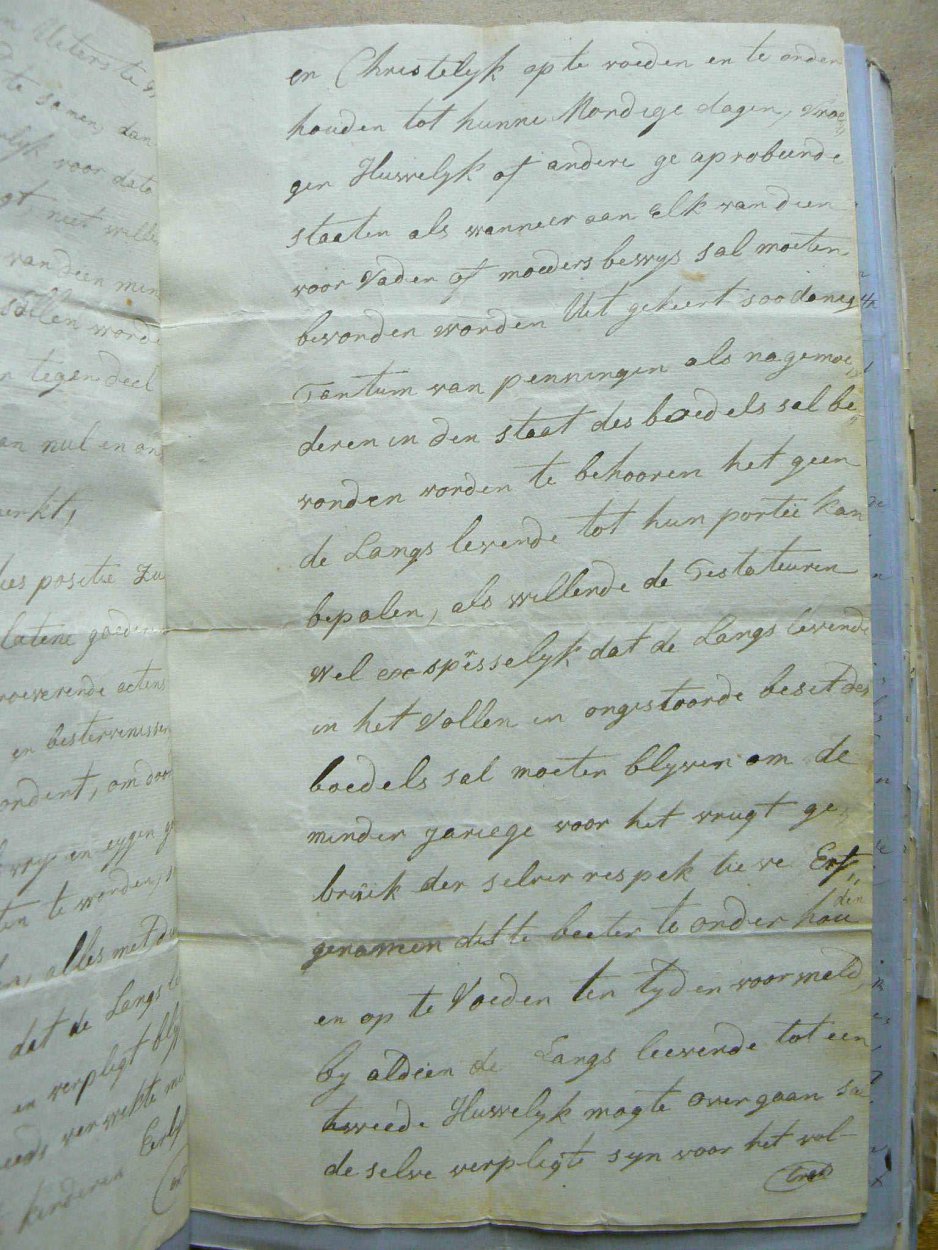 Uiterste
te samen, dan
lyk voor dato
gt, niet wille
van dien min
sullen worde
tegendeel
an nul en on
erkt,
dispositie zu
latene goeder
roeverende actens
en besterwenissen
ondert, om door
vry en eygen
ten te worden,
alles met du
dat de Langs le
en verpligt bly
kinderen Eerly
en Christelyk op te voeden en te onder
houden tot hunne Mondige dagen, vroe
ger Huwelyk of andere ge aprobeerde
staaten als wanneer aan Elk van dien
voor Vader of moeders bewys sal moeten
bevonden worden Uit gekeert soo danig
Tantum van penningen als na gemoe
deren in den staat des boedels sal be
vonden worden te behooren het geen
de Langs levende tot hun portie kan
bepalen, als willende de Testateuren
wel expresselyk dat de Langs levende
in het Vollen en ongestoorde besit des
boedels sal moeten blyven om de
minder jariege voor het vrugt ge
bruik der selver respektieve Erf
genamen dies te beeter te onder hou
den
en op te Voeden ten tyden voormeld,
by aldien de Langs leevende tot een
tweede Huwelyk mogte overgaan sa
de selve verpligte syn voor het vol-